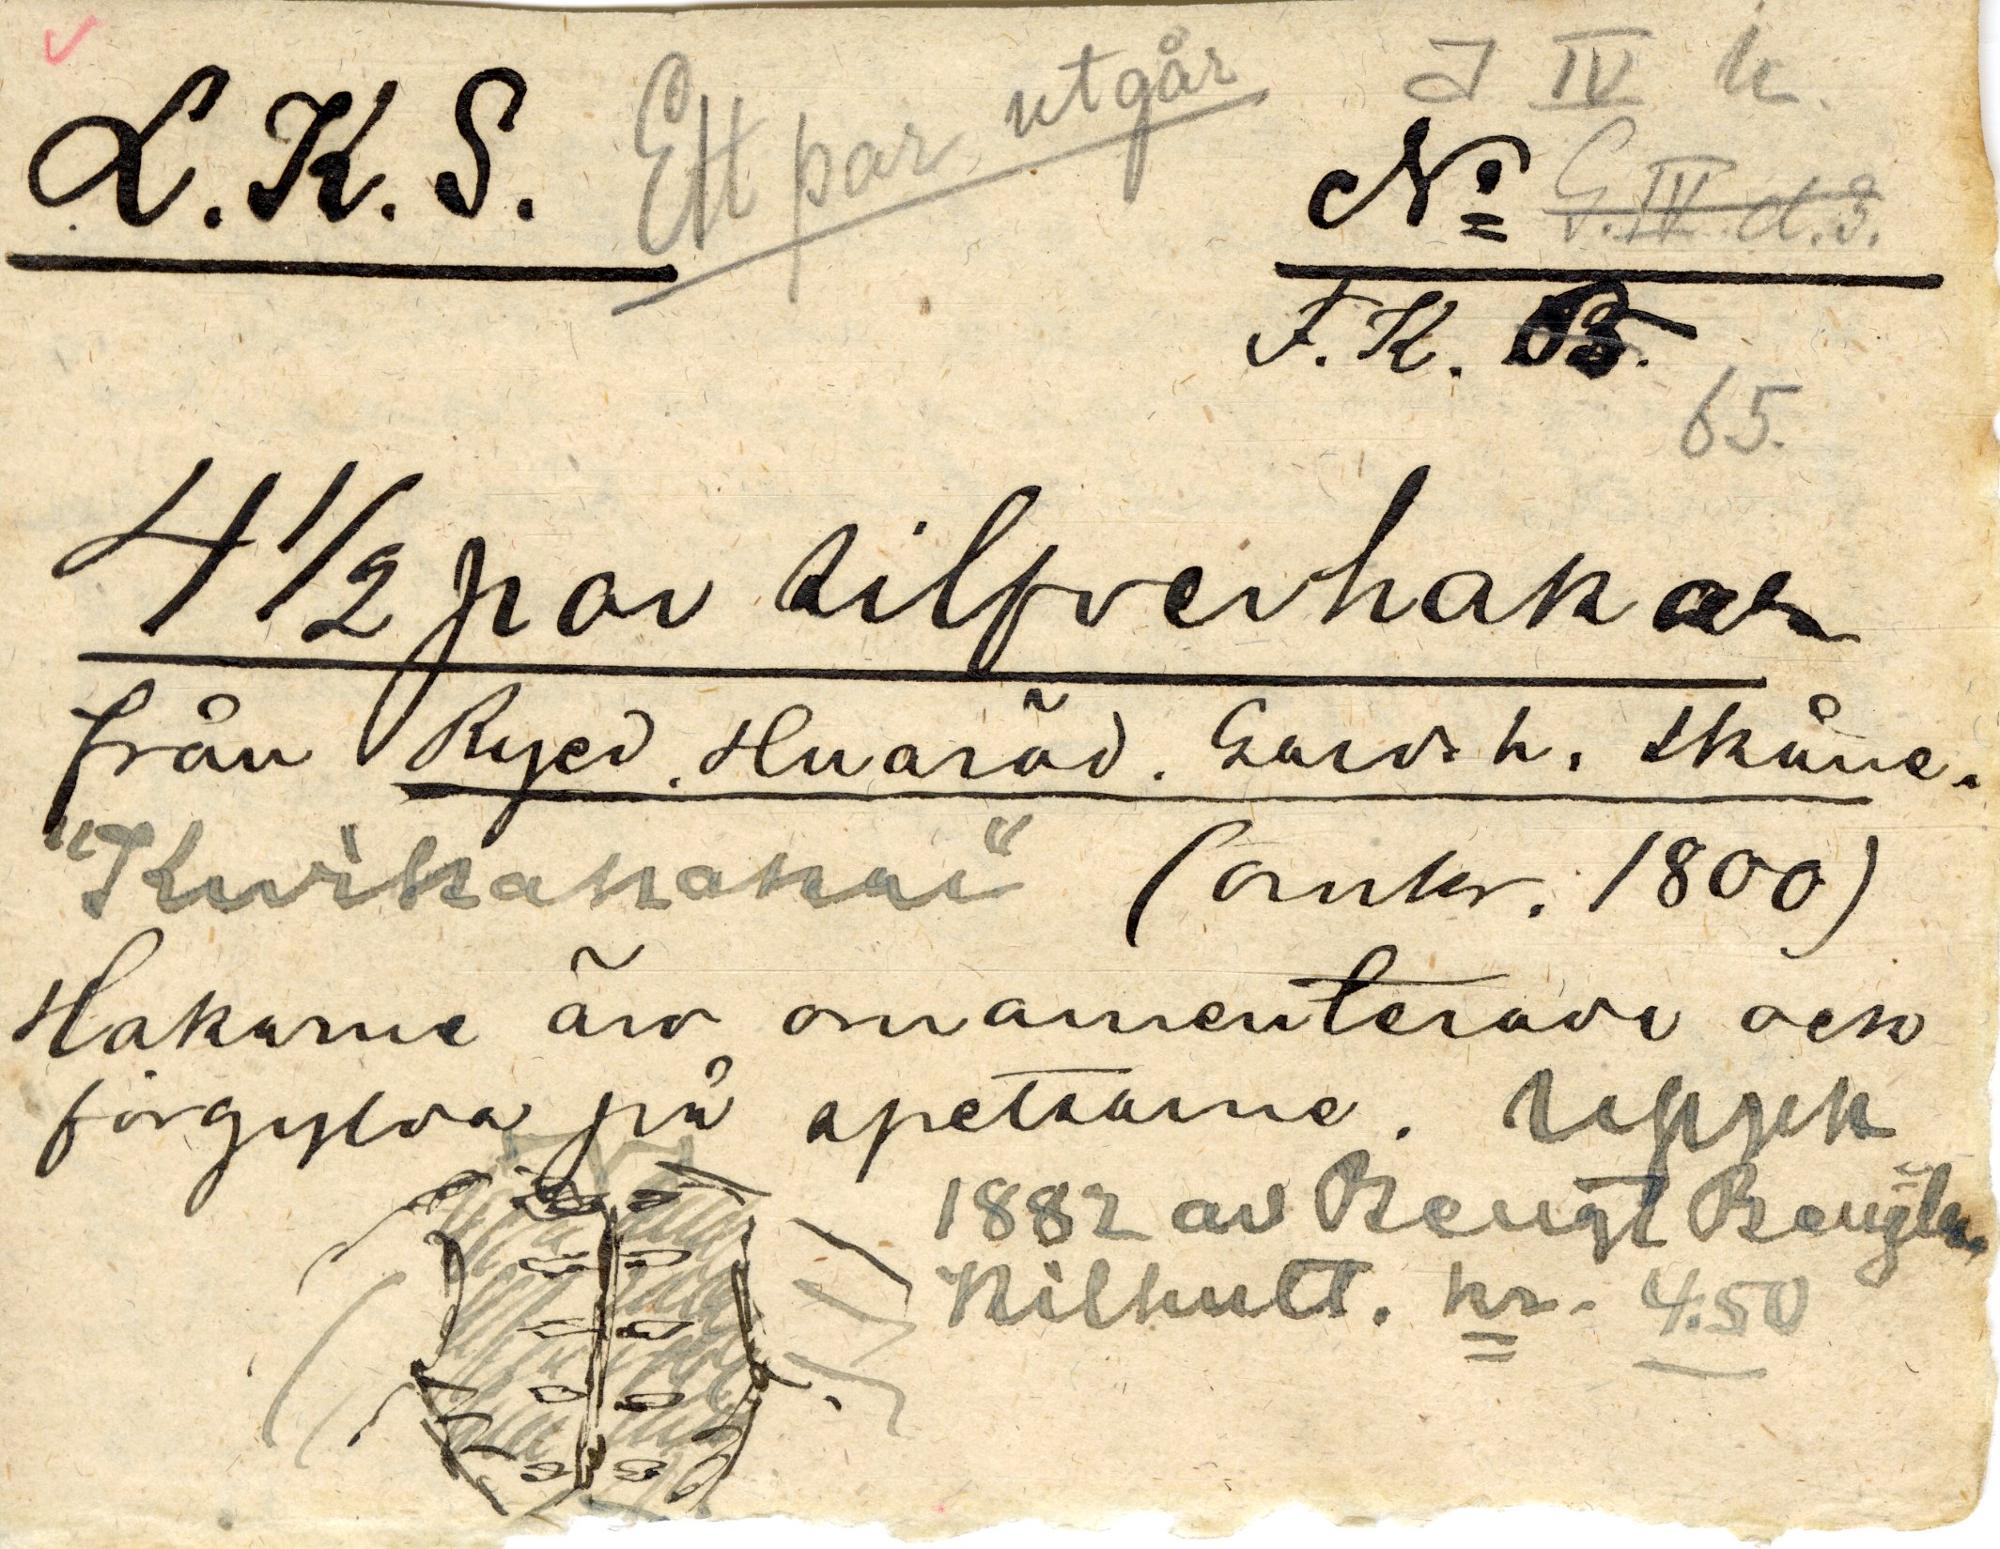 L.K.S. Ett par utgår J IV k.
No G.IV.d.3.
F.K. B.
65.
4 1/2 par silfverhakar
från Ryed. Huaröd. Gärds h. Skåne.
"Kvikahakar" (omkr. 1800)
Hakarne äro ornamenterade och
förgylda på spetsarne. Uppk
1882 av Bengt Bengts.
Kilhult. kr. 4.50